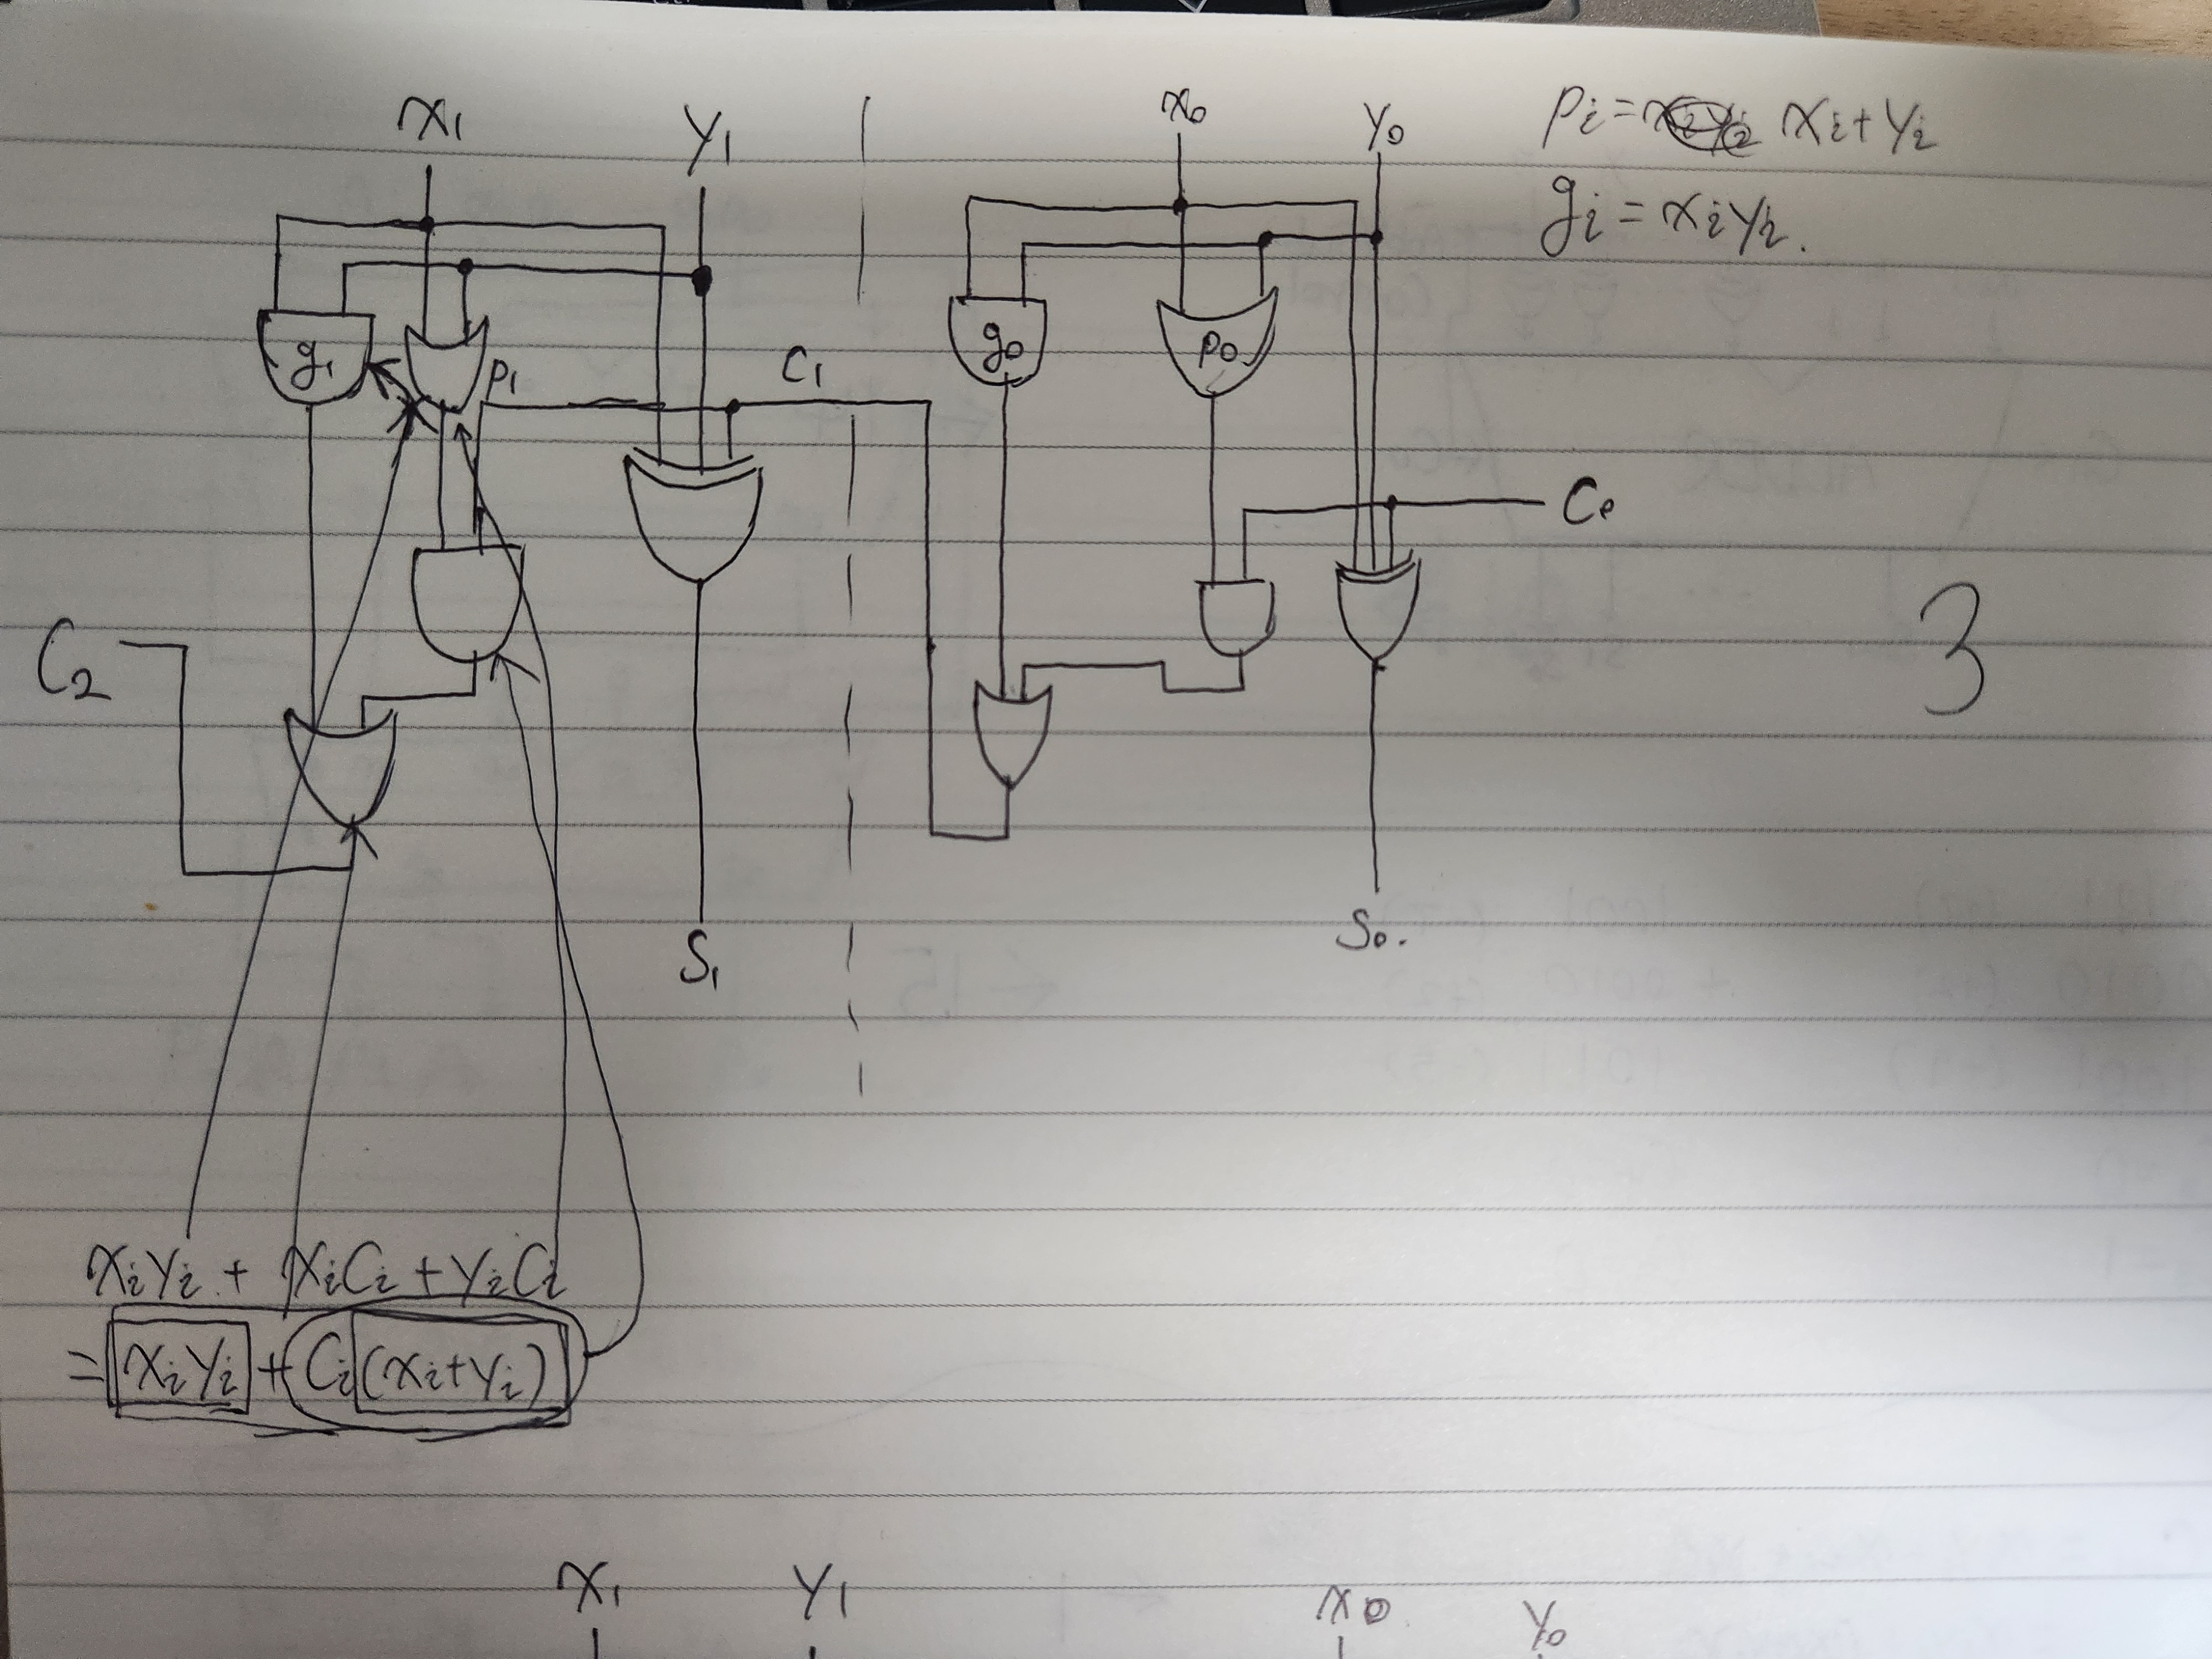 x₁ y₁ x₀ y₀ pᵢ = xᵢ + yᵢ
gᵢ = xᵢyᵢ.
g₁ p₁ C₁ g₀ p₀
C₀
C₂ 3
S₁ S₀.
xᵢyᵢ + xᵢCᵢ + yᵢCᵢ
= xᵢyᵢ + Cᵢ(xᵢ+yᵢ)
x₁ y₁ x₀ y₀